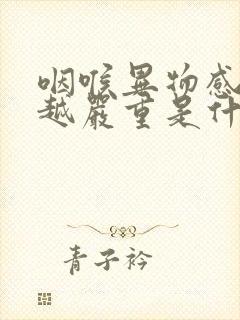 咽喉异物感
越严重是什
青子衿